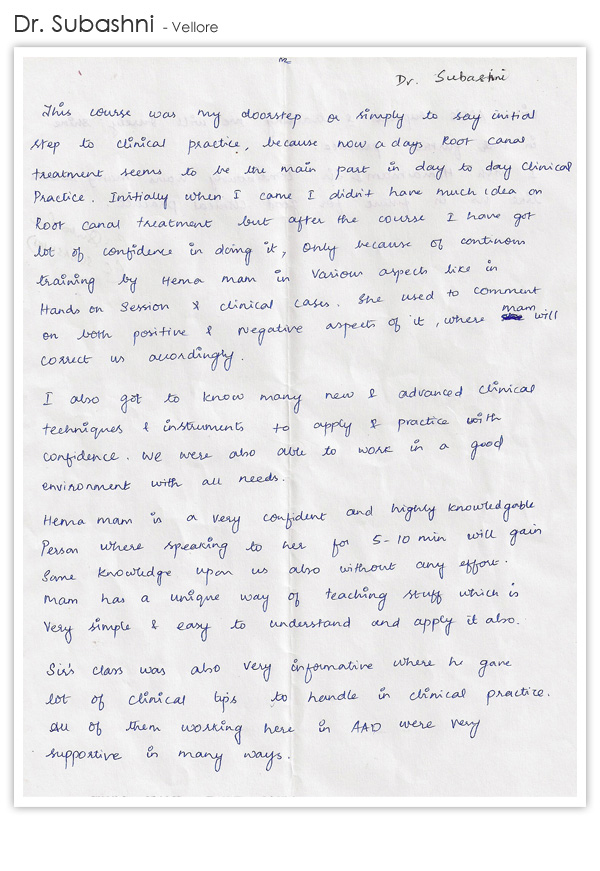 Dr. Subashni - Vellore
Dr. Subashni
This course was my doorstep or simply to say initial
step to clinical practice, because now a days Root Canal
treatment seems to be the main part in day to day Clinical
Practice. Initially when I came I didn't have much idea on
Root canal treatment but after the course I have got
lot of confidence in doing it, only because of continous
training by Hema mam in various aspects like in
Hands on Session & clinical cases. She used to comment
on both positive & negative aspects of it, where mam will
correct us accordingly.
I also got to know many new & advanced clinical
techniques & instruments to apply & practice with
confidence. We were also able to work in a good
environment with all needs.
Hema mam is a very confident and highly knowledgable
Person where speaking to her for 5-10 min will gain
Same knowledge upon us also without any effort.
Mam has a unique way of teaching stuff which is
very simple & easy to understand and apply it also.
Sir's class was also very informative where he gave
lot of clinical tips to handle in clinical practice.
All of them working here in AAD were very
supportive in many ways.